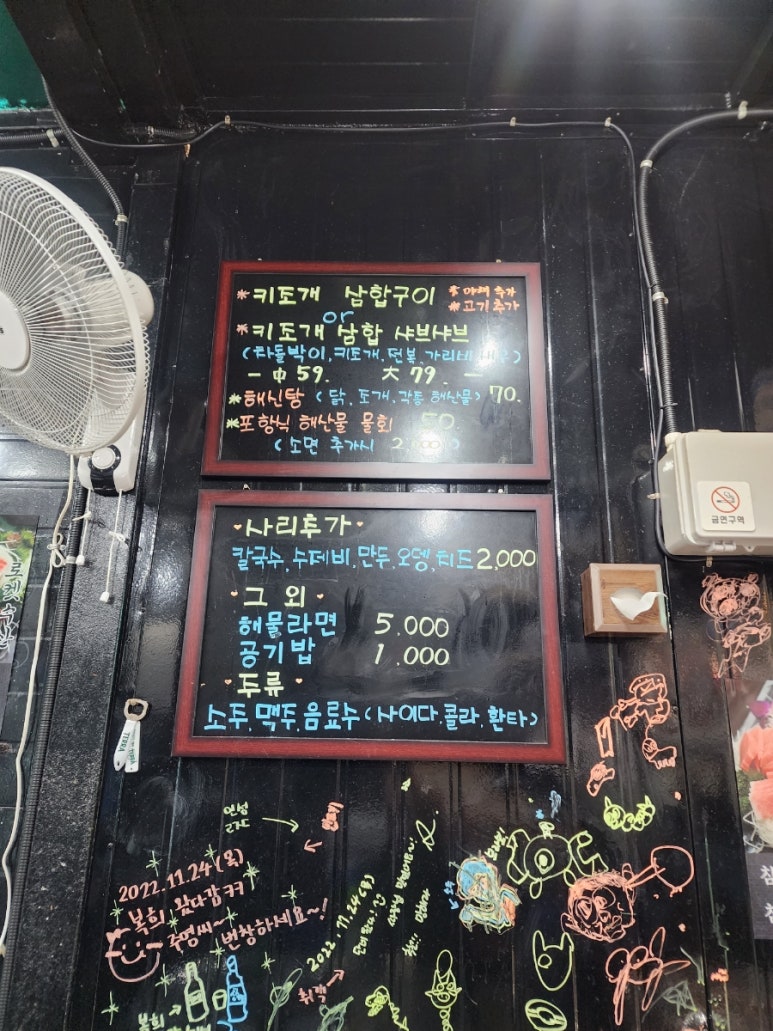 *키조개 삼합구이
*야채 추가
*고기 추가
or
*키조개 삼합 샤브샤브
(차돌박이, 키조개, 전복, 가리비, 새우)
- 中 59. 大 79. -
*해신탕 (닭, 조개, 각종 해산물) 70.
*포항식 해산물 물회 50.
(소면 추가시 2,000)
사리추가
칼국수, 수제비, 만두, 오뎅, 치즈 2,000
그 외
해물라면 5.000
공기밥 1.000
주류
소주, 맥주, 음료수 (사이다, 콜라, 환타)
금연구역
TERRA
2022.11.24 (목)
복희 왔다감 ㅋㅋ
주명씨~ 번창하세요~!
2022.11.24(목)
복희